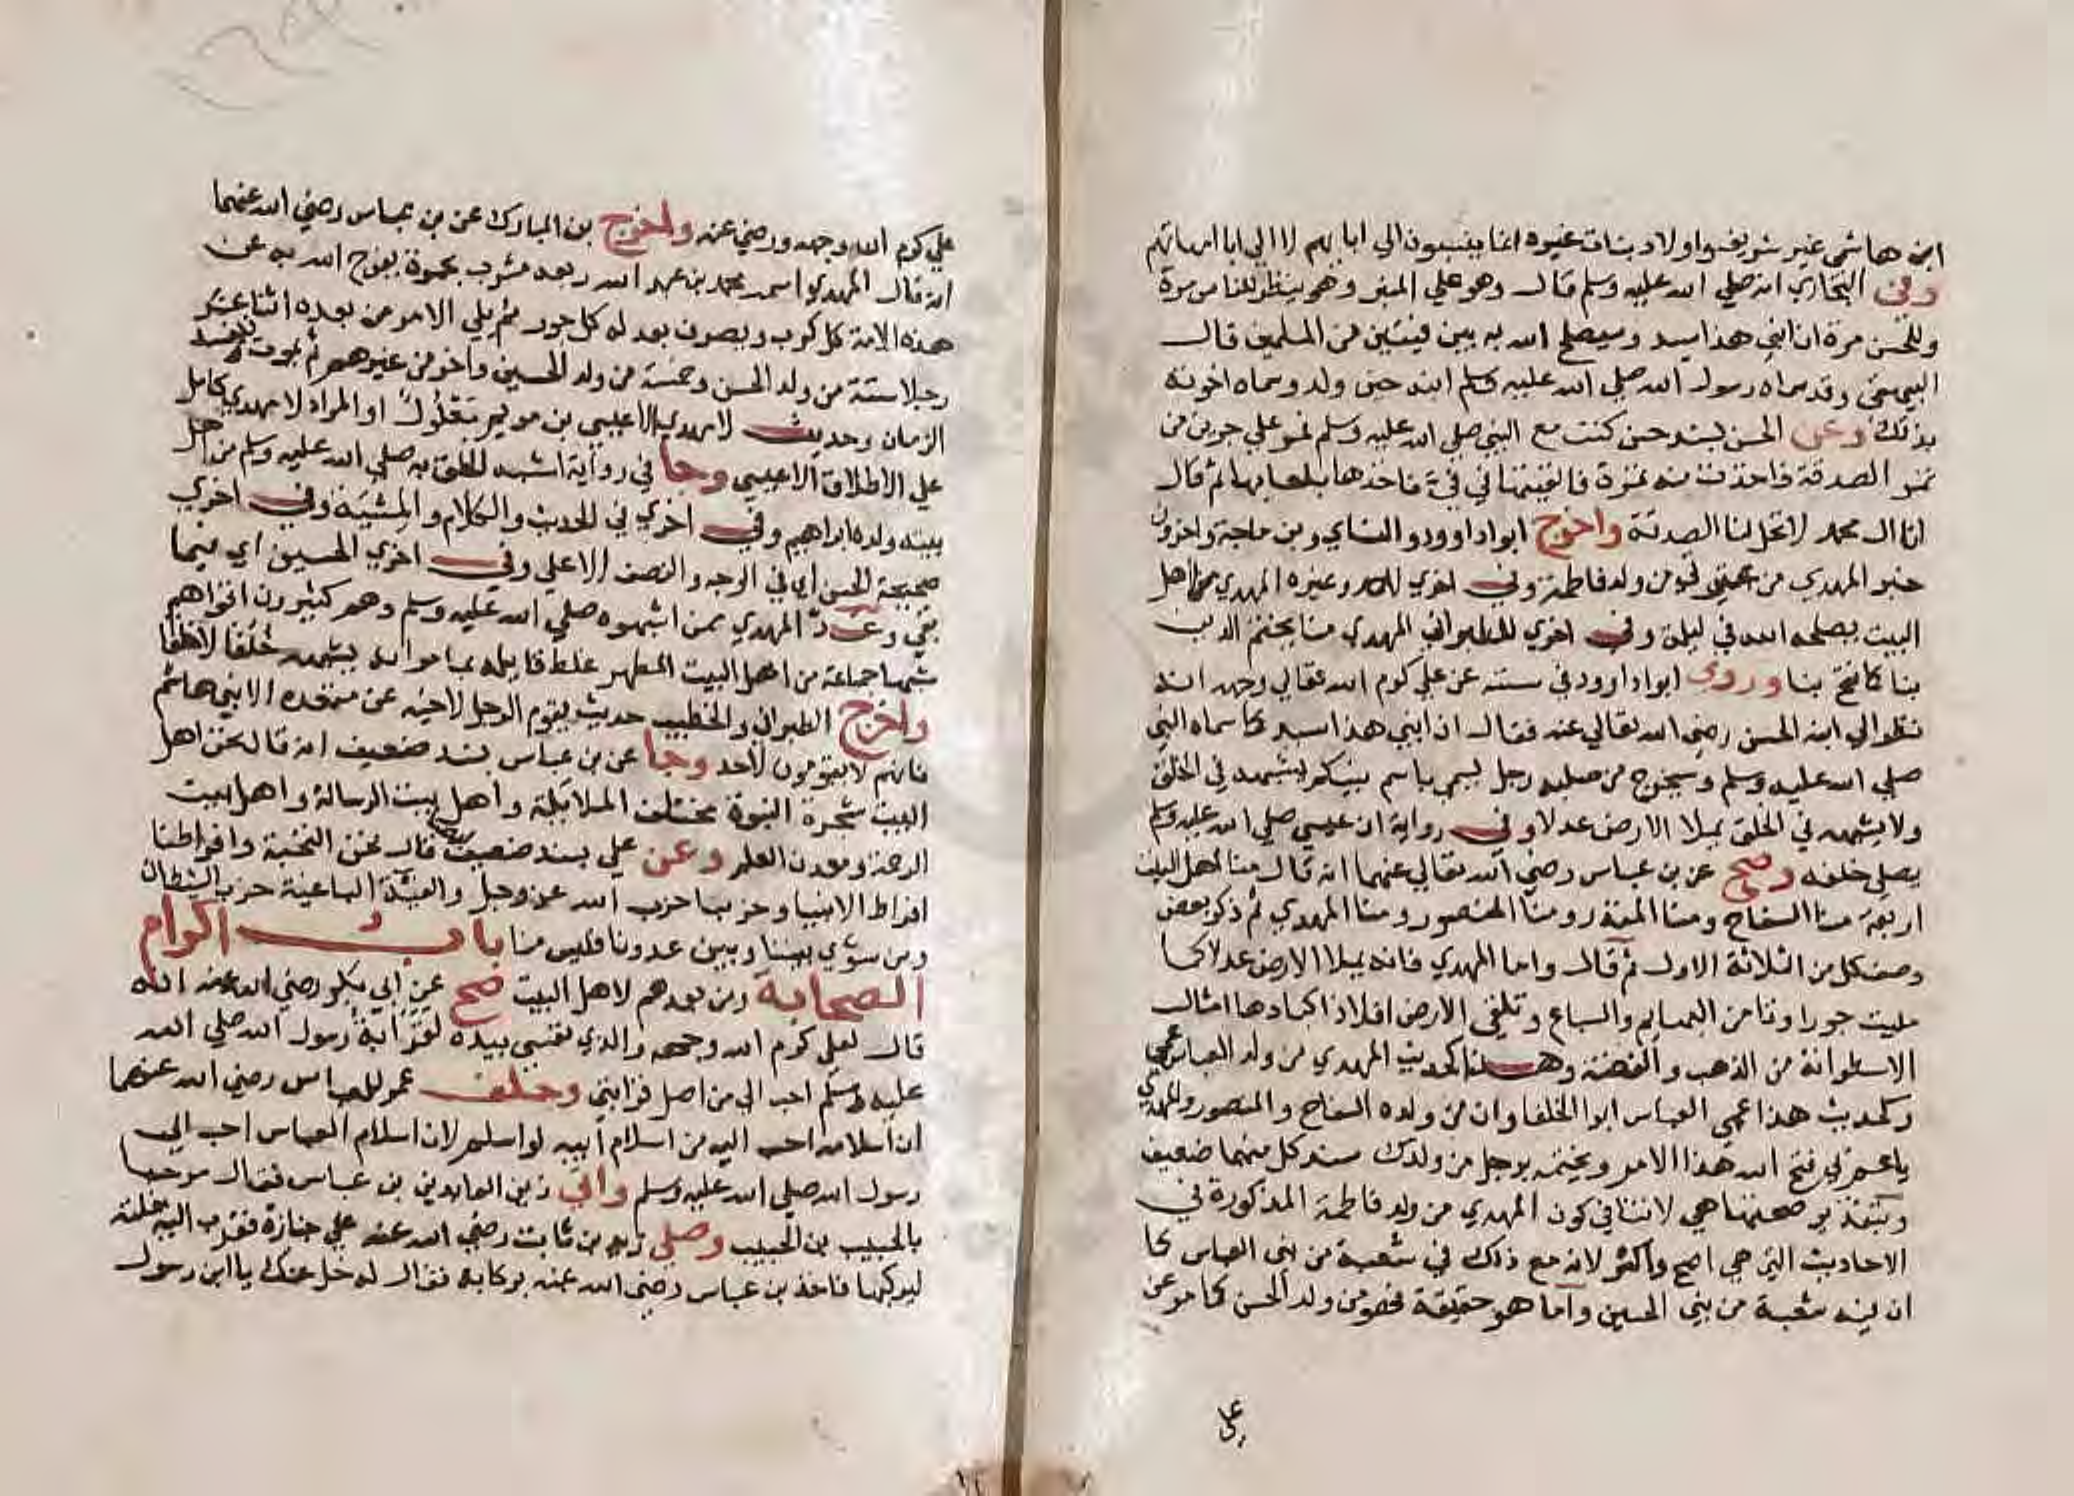 ابن هاشمي غير شريف واولاد بنات غيره انما ينسبون الي ابايهم لا الي ابا امهاتهم
وفي البخاري انه صلي الله عليه وسلم قال وهو علي المنبر وهو ينظر للناس مرة
وللحسن مرة ان ابني هذا سيد وسيصلح الله به بين فيتين من المسلمين قال
البيهقي وقد سماه رسول الله صلي الله عليه وسلم ابنه حين ولد وسماه اخوته
بذلك وعن الحسن بسند حسن كنت مع النبي صلي الله عليه وسلم فمر علي جرين من
تمر الصدقة فاخذت منه تمرة فالقيتها في في فاخذها بلعابها ثم قال
انا ال محمد لا تحل لنا الصدقة واخرج ابو داوود والنساي وبن ماجة واخرون
خبر المهدي من عترتي من ولد فاطمة وفي اخري لاحمد وغيره المهدي منا اهل
البيت يصلحه الله في ليلة وفي اخري للطبراني المهدي منا يختم الدين
بنا كما فتح بنا وروي ابو داوود في سننه عن علي كرم الله تعالي وجهه انه
نظر الي ابنه الحسن رضي الله تعالي عنه فقال ان ابني هذا سيد كما سماه النبي
صلي الله عليه وسلم وسيخرج من صلبه رجل يسمي باسم نبيكم يشبهه في الخلق
ولا يشبهه في الخلق يملا الارض عدلا وفي رواية ان عيسي صلي الله عليه وسلم
يصلي خلفه وصح عن بن عباس رضي الله تعالي عنهما انه قال منا اهل البيت
اربعة منا السفاح ومنا المنذر ومنا المنصور ومنا المهدي ثم ذكر بعض
وصف كل من الثلاثة الاول ثم قال واما المهدي فانه يملا الارض عدلا كما
مليت جورا وتامن البهايم والسباع وتلقي الارض افلاذ اكبادها امثال
الاسطوانة من الذهب والفضة وهذا كحديث المهدي من ولد العباس عمي
وكحديث هذا عمي العباس ابو الخلفا وان من ولده السفاح والمنصور والمهدي
يا عم بي فتح الله هذا الامر ويختمه برجل من ولدك سند كل منهما ضعيف
وبتقدير صحتهما هي لا تنافي كون المهدي من ولد فاطمة المذكورة في
الاحاديث التي هي اصح واكثر لانه مع ذلك في شعبة من بني العباس كما
ان فيه شعبة من بني الحسين واما هو حقيقة فهو من ولد الحسن كما مر عن
علي
علي كرم الله وجهه ورضي عنه واخرج بن المبارك عن بن عباس رضي الله عنهما
انه قال المهدي اسمه محمد بن عبد الله ربعة مشرب بحمرة يفرج الله به عن
هذه الامة كل كرب ويصرف بعدله كل جور ثم يلي الامر من بعده اثنا عشر
رجلا ستة من ولد الحسن وخمسة من ولد الحسين واخر من غيرهم ثم يموت فيفسد
الزمان وحديث لا مهدي الا عيسي بن مريم معلول او المراد لا مهدي كامل
علي الاطلاق الا عيسي وجا في رواية اشبه الخلق به صلي الله عليه وسلم من اهل
بيته ولده ابراهيم وفي اخري في الحديث والكلام والمشية وفي اخري
صحيحة الحسن اي في الوجه والنصف الاعلي وفي اخري الحسين اي فيما
بقي وعد المهدي ممن اشبهوه صلي الله عليه وسلم وهم كثيرون اقواهم
شبها جماعة من اهل البيت المطهر غلط قايله بما مر انه يشبهه خلقا لا خلقا
واخرج الطبراني والخطيب حديث يقوم الرجل لاخيه عن مقعده الا بني هاشم
فانهم لا يقومون لاحد وجا عن بن عباس بسند ضعيف انه قال نحن اهل
البيت شجرة النبوة مختلف الملايكة واهل بيت الرسالة واهل بيت
الرحمة ومعدن العلم وعن علي بسند ضعيف قال نحن النجبة وافراطنا
افراط الانبيا وحزبنا حزب الله عز وجل والفية الباغية حزب الشيطان
ومن سوي بيننا وبين عدونا فليس منا باب اكرام
الصحابة ومن بعدهم لاهل البيت صح عن ابي بكر رضي الله عنه انه
قال لعلي كرم الله وجهه والذي نفسي بيده لقرابة رسول الله صلي الله
عليه وسلم احب الي من اصل قرابتي وحلف عمر للعباس رضي الله عنهما
ان اسلامه احب اليه من اسلام ابيه لو اسلم لان اسلام العباس احب الي
رسول الله صلي الله عليه وسلم واتي زين العابدين بن عباس فقال مرحبا
بالحبيب بن الحبيب وصلي زيد بن ثابت رضي الله عنه علي جنازة فقرب اليه بغلته
ليركبها فاخذ بن عباس رضي الله عنه بركابه فقال له خل عنك يا ابن رسول